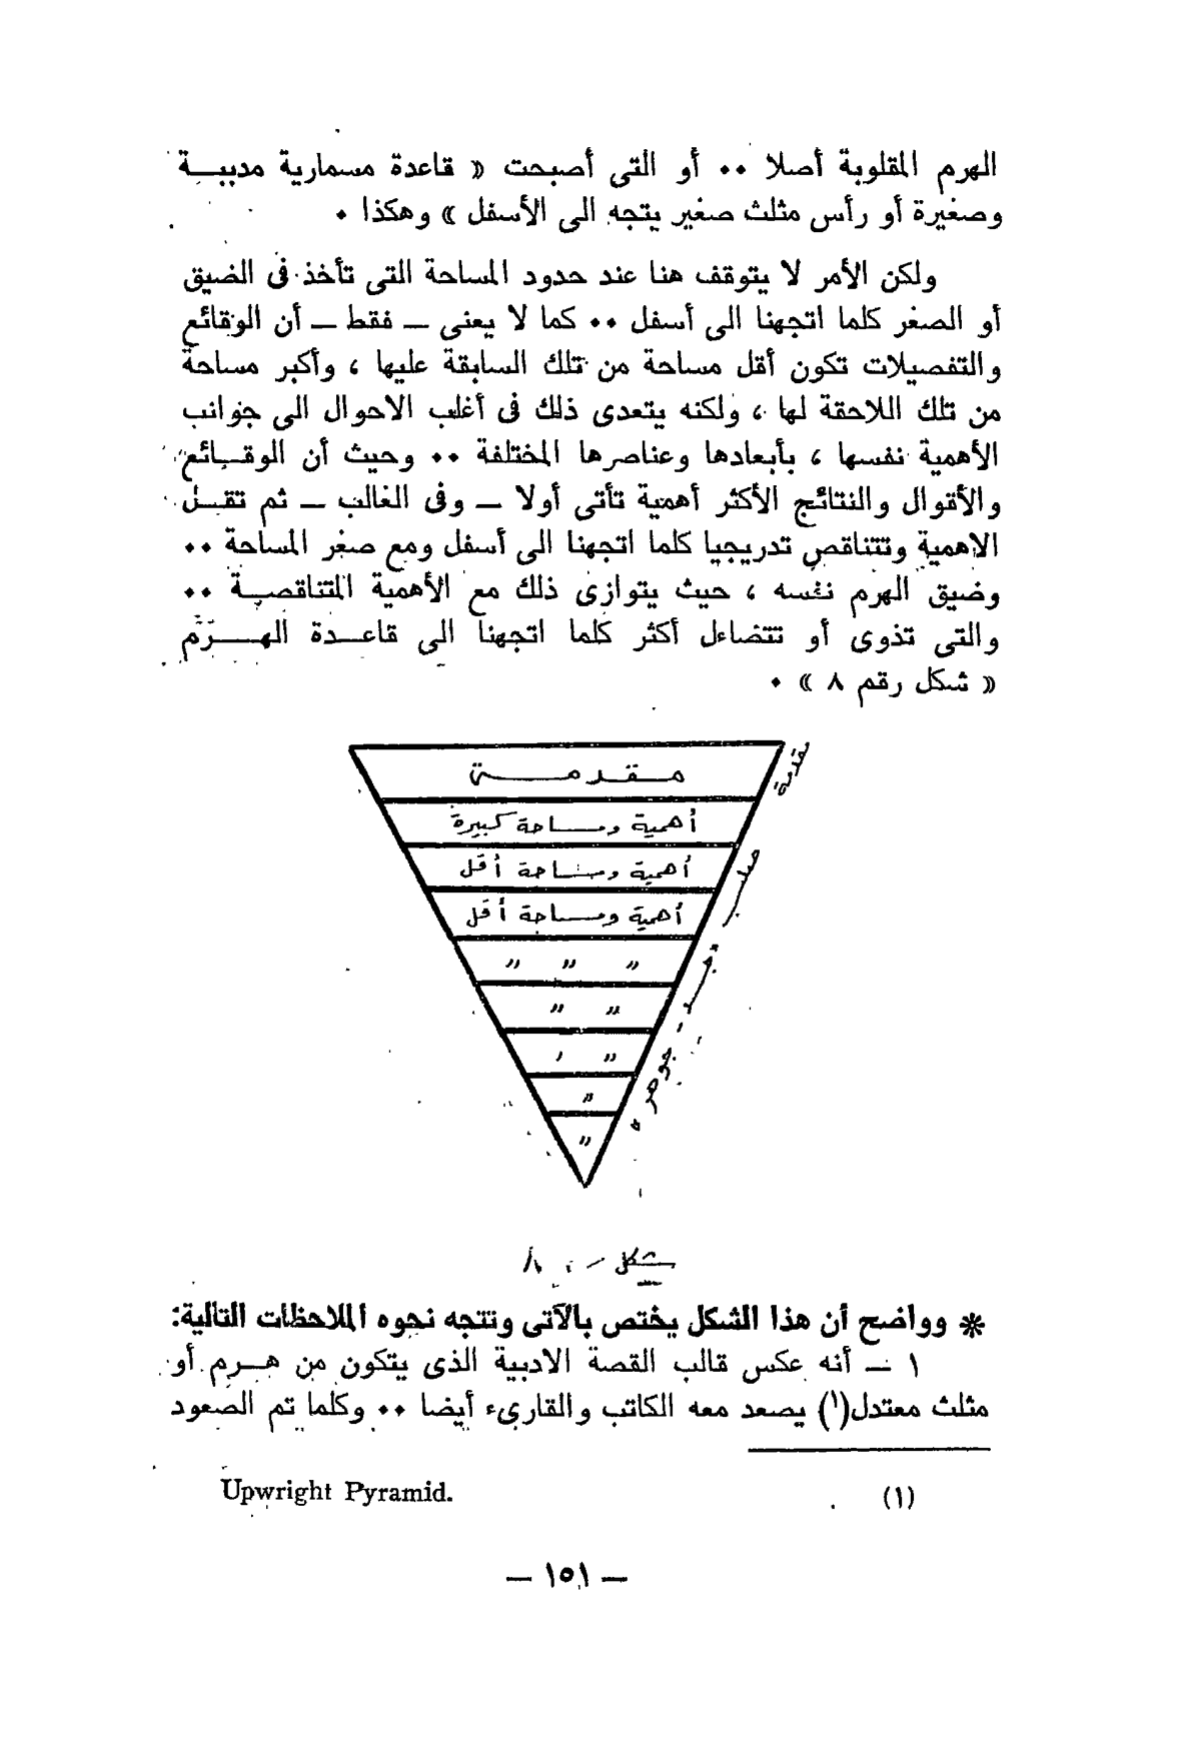 الهرم المقلوبة أصلا ٠٠ أو التى أصبحت « قاعدة مسمارية مدببــة
وصغيرة أو رأس مثلث صغير يتجه الى الأسفل » وهكذا ٠
ولكن الأمر لا يتوقف هنا عند حدود المساحة التى تأخذ فى الضيق
أو الصغر كلما اتجهنا الى أسفل ٠٠ كما لا يعنى ــ فقط ــ أن الوقائع
والتفصيلات تكون أقل مساحة من تلك السابقة عليها ، وأكبر مساحة
من تلك اللاحقة لها ، ولكنه يتعدى ذلك فى أغلب الاحوال الى جوانب
الأهمية نفسها ، بأبعادها وعناصرها المختلفة ٠٠ وحيث أن الوقــائع
والأقوال والنتائج الأكثر أهمية تأتى أولا ــ وفى الغالب ــ ثم تقــل
الاهمية وتتناقص تدريجيا كلما اتجهنا الى أسفل ومع صغر المساحة ٠٠
وضيق الهرم نفسه ، حيث يتوازى ذلك مع الأهمية المتناقصــة ٠٠
والتى تذوى أو تتضاءل أكثر كلما اتجهنا الى قاعــدة الهـــرم
« شكل رقم ٨ » ٠
مـقـدمـــة
مقدمة
أهمية ومساحة كبيرة
أهمية ومساحة أقل
أهمية ومساحة أقل
صلب
〃 〃 〃
〃 〃
〃 〃
〃
〃
« جسد - جوهر »
شكل ٨
* وواضح أن هذا الشكل يختص بالآتى وتتجه نحوه الملاحظات التالية:
١ ــ أنه عكس قالب القصة الادبية الذى يتكون من هــرم أو
مثلث معتدل(١) يصعد معه الكاتب والقارىء أيضا ٠٠ وكلما تم الصعود
(١) Upwright Pyramid.
ــ ١٥١ ــ